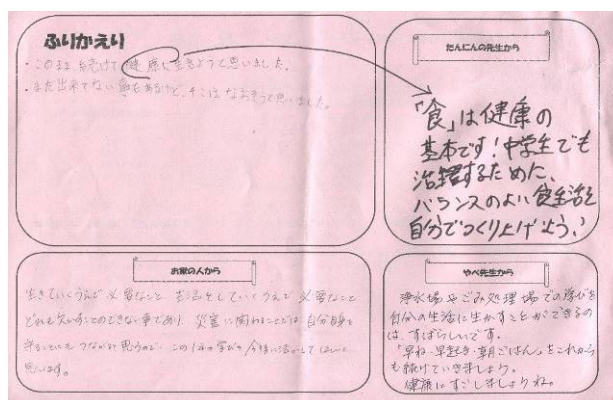 ふりかえり
・このまま続けて健康に生きようと思いました。
・まだ出来てない事もあるけど、そこはなおそうと思いました。
たんにんの先生から
「食」は健康の
基本です!中学生でも
活躍するために、
バランスのよい食生活を
自分でつくり上げよう!
お家の人から
生きていくうえで必要なこと 生活をしていくうえで必要なこと
どれも欠かすことのできない事であり、災害に関わることは、自分自身を
守ることにもつながると思うので、この1年の学びを今後に活かしてほしいと
思います。
やべ先生から
浄水場やごみ処理場での学びを
自分の生活に生かすことができるの
は、すばらしいです。
「早ね・早起き・朝ごはん」をこれから
も続けていきましょう。
健康にすごしましょうね。